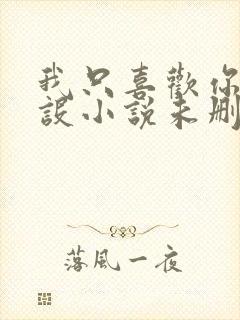 我只喜歡你
設小說未刪
落風一夜